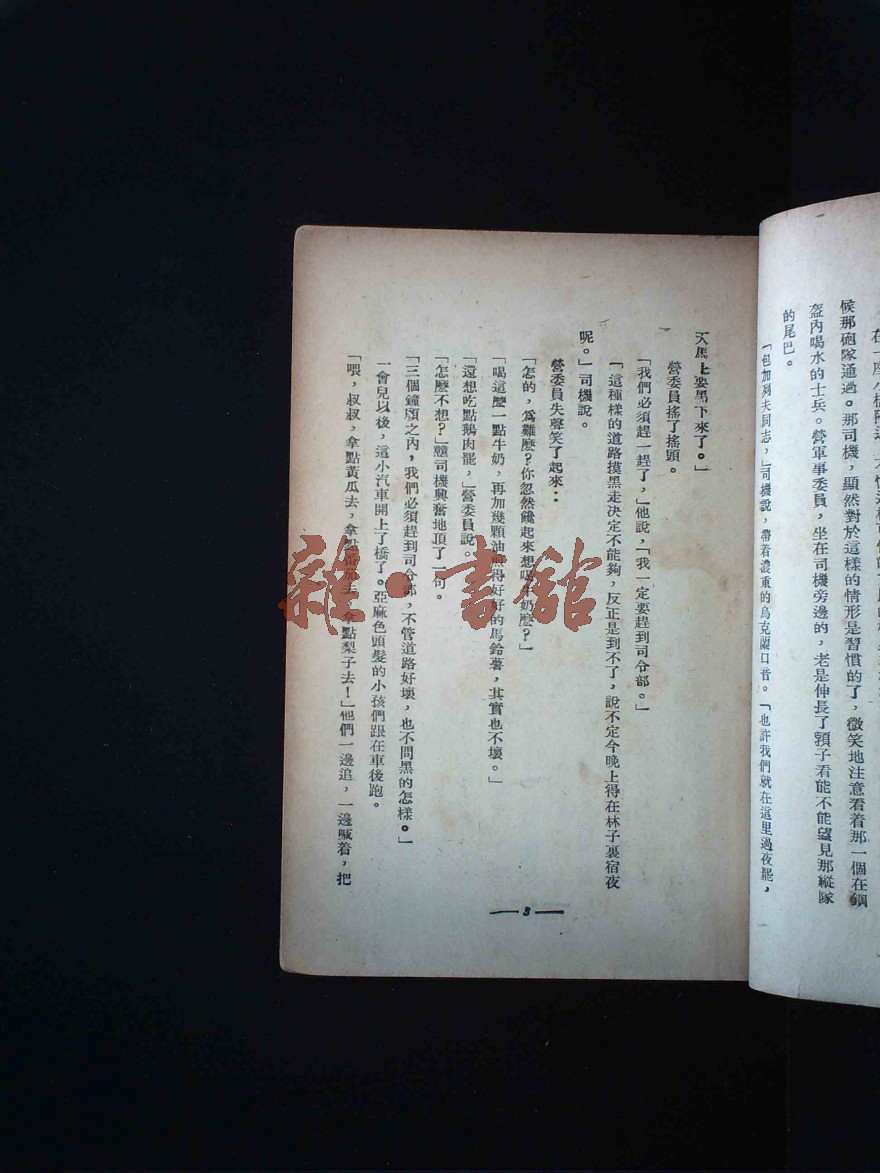 候那砲隊通過。那司機，顯然對於這樣的情形是習慣的了，微笑地注意看着那一個在鋼
盔內喝水的士兵。營軍事委員，坐在司機旁邊的，老是伸長了頸子看能不能望見那縱隊
的尾巴。
「包加列夫同志，」司機說，帶着濃重的烏克蘭口音。「也許我們就在這里過夜罷，
天馬上要黑下來了。」
營委員搖了搖頭。
「我們必須趕一趕了，」他說，「我一定要趕到司令部。」
「這種樣的道路摸黑走決定不能夠，反正是到不了，說不定今晚上得在林子裏宿夜
呢。」司機說。
營委員失聲笑了起來：
「怎的，爲難麽？你忽然饞起來想喝牛奶麽？」
「喝這麽一點牛奶，再加幾顆油煎得好好的馬鈴薯，其實也不壞。」
「還想吃點鵝肉罷，」營委員說。
「怎麽不想？」聽司機興奮地頂了一句。
「三個鐘頭之內，我們必須趕到司令部，不管道路好壞，也不問黑的怎樣。」
一會兒以後，這小汽車開上了橋了。亞麻色頭髮的小孩們跟在車後跑。
「喂，叔叔，拿點黃瓜去，拿點番茄去，拿點梨子去！」他們一邊追，一邊喊着，把
— 3 —
雜·書館